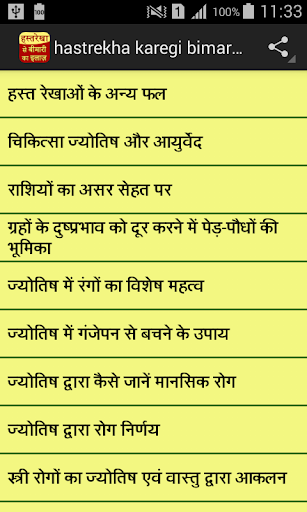 1 100% 11:33
हस्तरेखा
से बीमारी
का इलाज
hastrekha karegi bimar...
हस्त रेखाओं के अन्य फल
चिकित्सा ज्योतिष और आयुर्वेद
राशियों का असर सेहत पर
ग्रहों के दुष्प्रभाव को दूर करने में पेड़-पौधों की
भूमिका
ज्योतिष में रंगों का विशेष महत्व
ज्योतिष में गंजेपन से बचने के उपाय
ज्योतिष द्वारा कैसे जानें मानसिक रोग
ज्योतिष द्वारा रोग निर्णय
स्त्री रोगों का ज्योतिष एवं वास्तु द्वारा आकलन